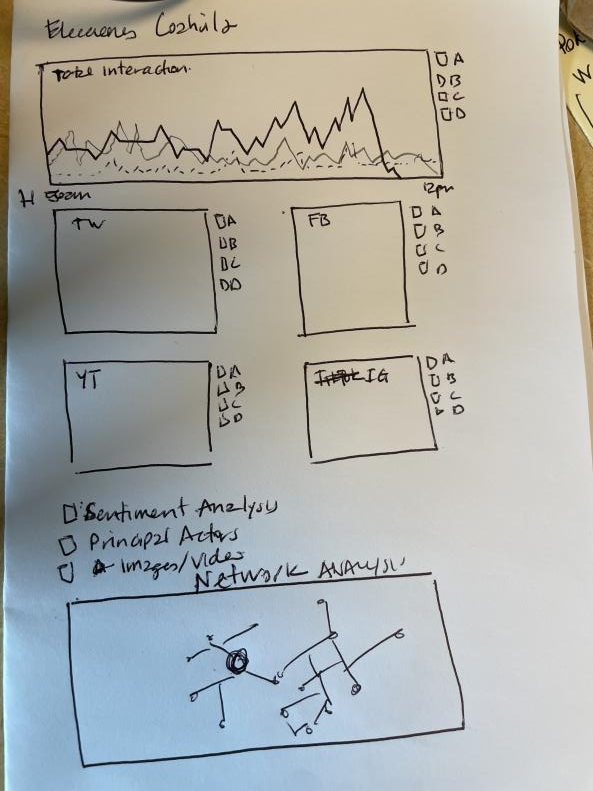 Elecciones Coahuila
Total interaction.
A
B
C
D
12pm
TW
A
B
C
D
FB
A
B
C
D
YT
A
B
C
D
IG
A
B
C
D
Sentiment Analysis
Principal Actors
Images/Video
Network ANAlysis